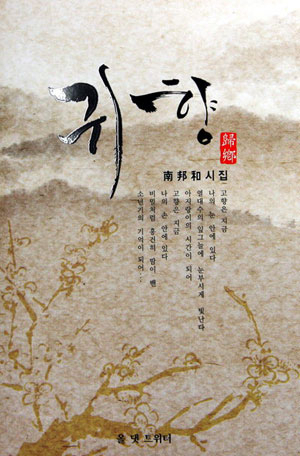 귀향
歸鄕
南邦和시집
고향은 지금
나의 눈 안에 있다
열대수의 잎그늘에 눈부시게 빛난다
아지랑이의 시간이 되어
고향은 지금
나의 손 안에 있다
비밀처럼 흥건히 땀이 밴
소년기의 기억이 되어…
올 댓 트위터